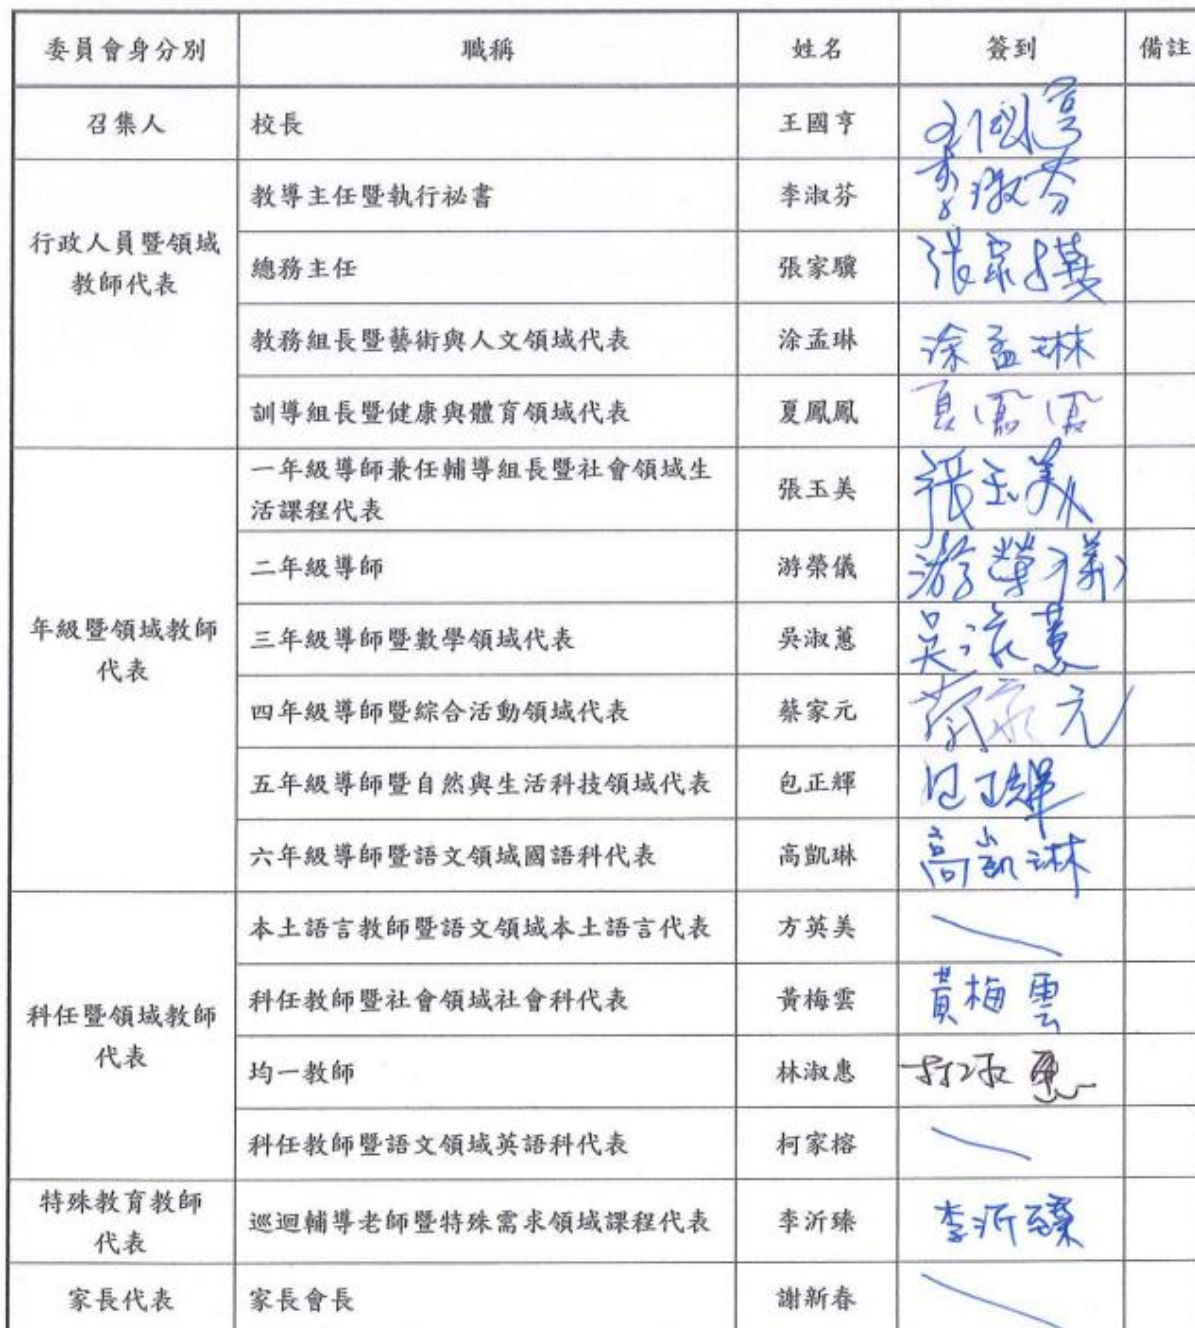 委員會身分別 職稱 姓名 簽到 備註
召集人 校長 王國亨 王國亨
行政人員暨領域
教師代表
教導主任暨執行祕書 李淑芬 李淑芬
總務主任 張家驥 張家驥
教務組長暨藝術與人文領域代表 涂孟琳 涂孟琳
訓導組長暨健康與體育領域代表 夏鳳鳳 夏鳳鳳
年級暨領域教師
代表
一年級導師兼任輔導組長暨社會領域生
活課程代表 張玉美 張玉美
二年級導師 游榮儀 游榮儀
三年級導師暨數學領域代表 吳淑蕙 吳淑蕙
四年級導師暨綜合活動領域代表 蔡家元 蔡家元
五年級導師暨自然與生活科技領域代表 包正輝 包正輝
六年級導師暨語文領域國語科代表 高凱琳 高凱琳
科任暨領域教師
代表
本土語言教師暨語文領域本土語言代表 方英美
科任教師暨社會領域社會科代表 黃梅雲 黃梅雲
均一教師 林淑惠 林淑惠
科任教師暨語文領域英語科代表 柯家榕
特殊教育教師
代表
巡迴輔導老師暨特殊需求領域課程代表 李沂臻 李沂臻
家長代表 家長會長 謝新春